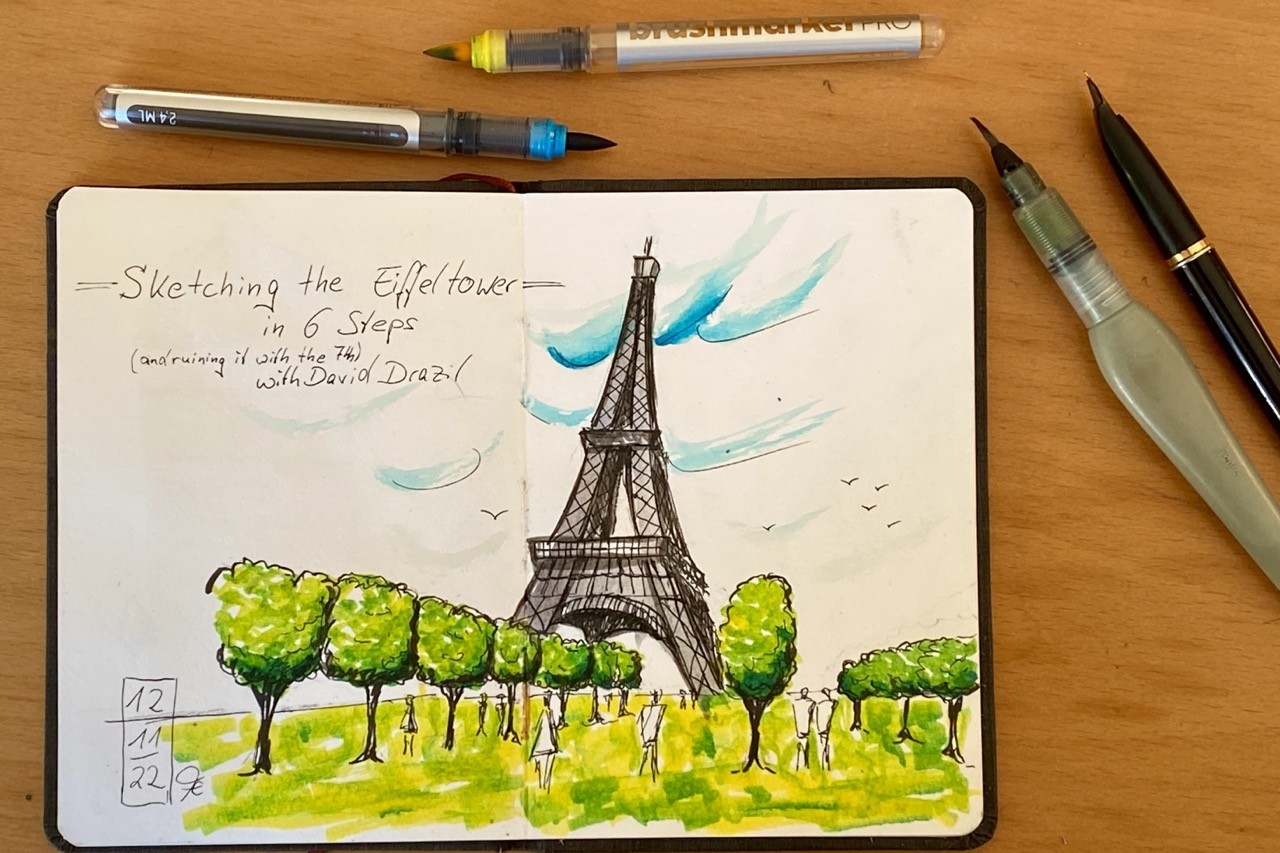 brushmarker PRO
2,4 ML
Sketching the Eiffeltower
in 6 Steps
(and ruining it with the 7th)
with David Drazil
12
11
22